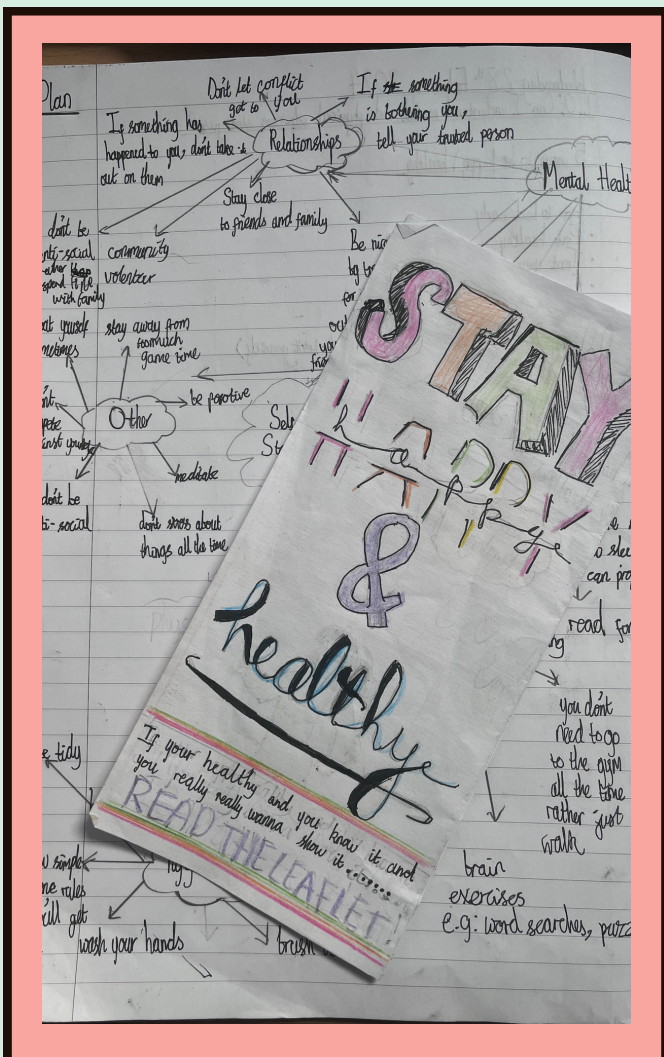 Plan
Don't let conflict
get to you
If something
is bothering you,
tell your trusted person
If something has
happened to you, don't take it
out on them
Relationships
Mental Healt
Stay close
to friends and family
don't be
nti-social
rather
spend time
with family
community
volenteer
Be nic
stay away from
toomuch
game time
Other
be parotive
meditate
don't be
ti-social
dont stress about
things all the time
Sel
St
STAY
happy
HAPPY
&
healthy
If your healthy and you know it and
you really really wanna show it.......
READ THE LEAFLET!
read for
you don't
need to go
to the gym
all the time
rather just
walk
brain
exercises
e.g: word searches, puzz
e tidy
simple
rules
ill get
wash your hands
brush